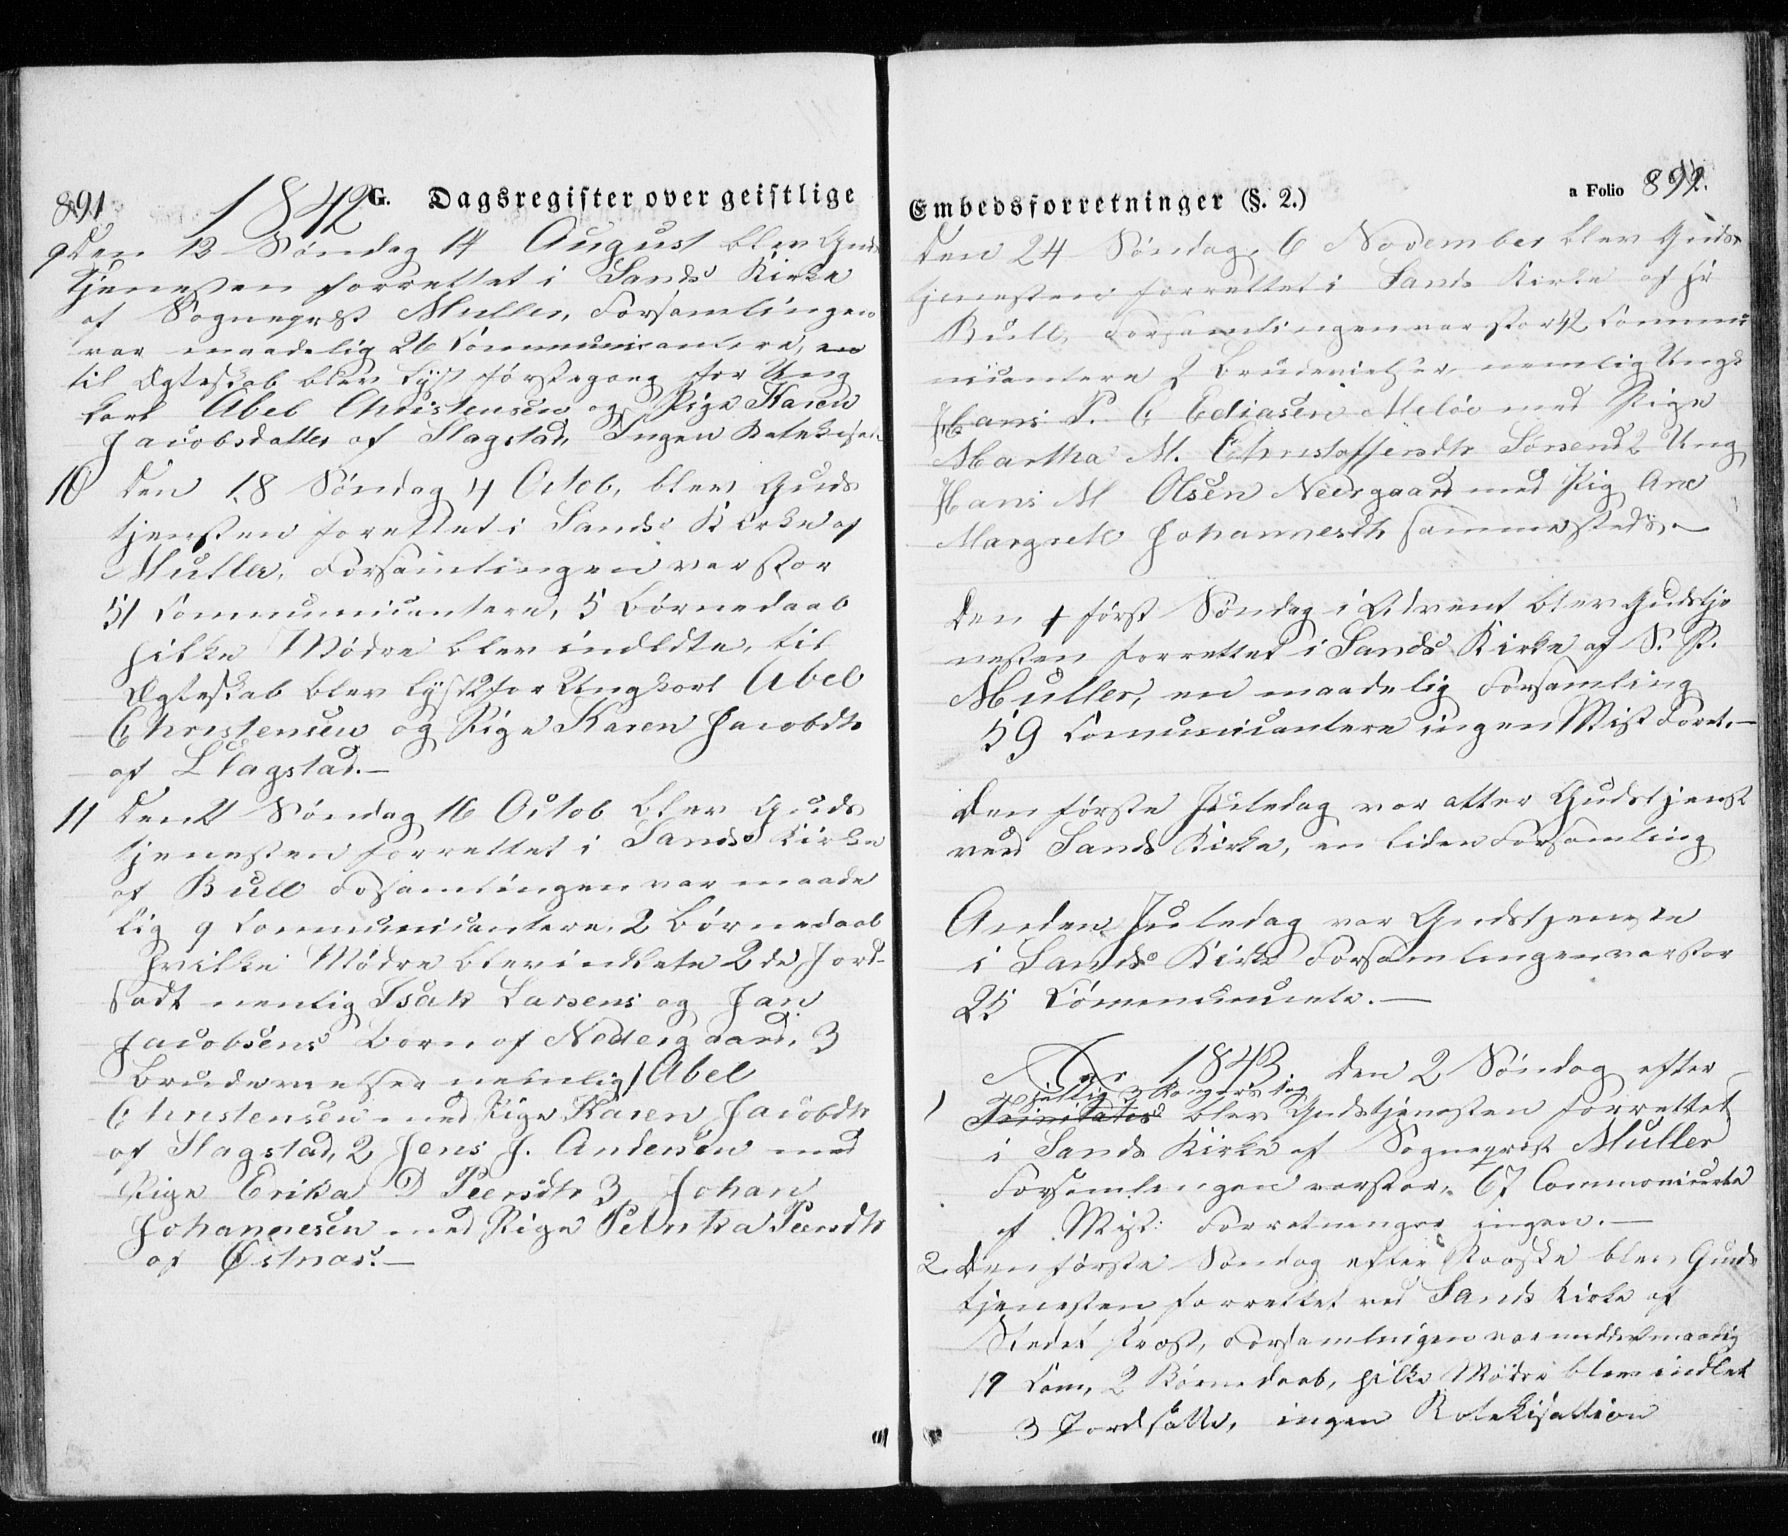 891
1842 G. Dagsregister over geistlige
9 Den 12 Søndag 14 August blev Guds
tjenesten forrettet i Sands Kirke
af Sogneprest Muller, Forsamlingen
var maadelig 26 Communicantere, en
til Ægteskab blev lyst førstegang for Ung
karl Abel Christensen og Pige Karen
Jacobsdatter af Slagstad, Ingen Katekisa
10 Den 18 Søndag 4 Octob, blev Guds
tjensten forettet i Sands Kirke af
Muller, Forsamlingen var stor
51 Communicantere, 5 Børnedaab
hilke Mødre blev indledte, til
Ægteskab blev lyst 2 for Ungkarl Abel
Christensen og Pige Karen Jacobdtr
af Slagstad.—
11 Den 21 Søndag 16 Octob blev Guds
tjenesten forrettet i Sands Kirke
af Bull Fosamlingen var maade
lig 9 Communicantere, 2 Børnedaab
hvilke Mødre blev indlete 2de Jord-
sadt nemlig Isak Larsens og Jan
Jacobsens Børn af Nedergaard, 3
Brudevielser nemlig 1 Abel
Christensen med Pige Karen Jacobdtr
af Slagstad, 2 Jens J. Andersen med
Pige Erika D Peersdtr 3, Johan
Johannesen med Pige Petrika Peersdtr
af Østnas.—
Embedsforretninger (§. 2.)
a Folio 892.
Den 24 Søndag, 6 November blev Guds
tjenesten forrettet i Sands Kirke af Hr
Bull, Forsamlingen var stor 42 Commu
nicantere 2 Brudevielser, nemlig Ungk
Hans P. C Ediasen Meløe med Pige
Martha M. Christoffersdtr Sørsend 2 Ung
Hans M Olsen Neergaard med Pig Ane
Margrete Johannesdtr sammesteds.—
Den 1 først Søndag i Advent blev Gudstje
nesten forrettet i Sands Kirke af S. P.
Muller, en maadelig Forsamling
59 Comunicantere ingen Mist Foret.—
Den første Juledag var atter Gudstjenst
ved Sands Kirke, en liden Forsamling
Anden Juledag var Gudstjeneste
i Sands Kirke Forsamlingen var stor
25 Comenicante.—
Aar 1843. Den 2 Søndag efter
hellig 3 Kongers dag
1 Trinitatis blev Gudstjenesten forrettet
i Sands Kirke af Sogneprest Muller
Forsamlengen var stor, 67 Commonicante
af Mist: Forretninger ingen.—
2 Den første Søndag efter Paaske blev Guds
tjenesten forrettet ved Sands Kirke af
Stedes Præst, Forsamlingen var middelmaadig
19 Com, 2 Børnedaab, hilke Mødre blev indlet
3 Jordsatte, ingen Katekisation